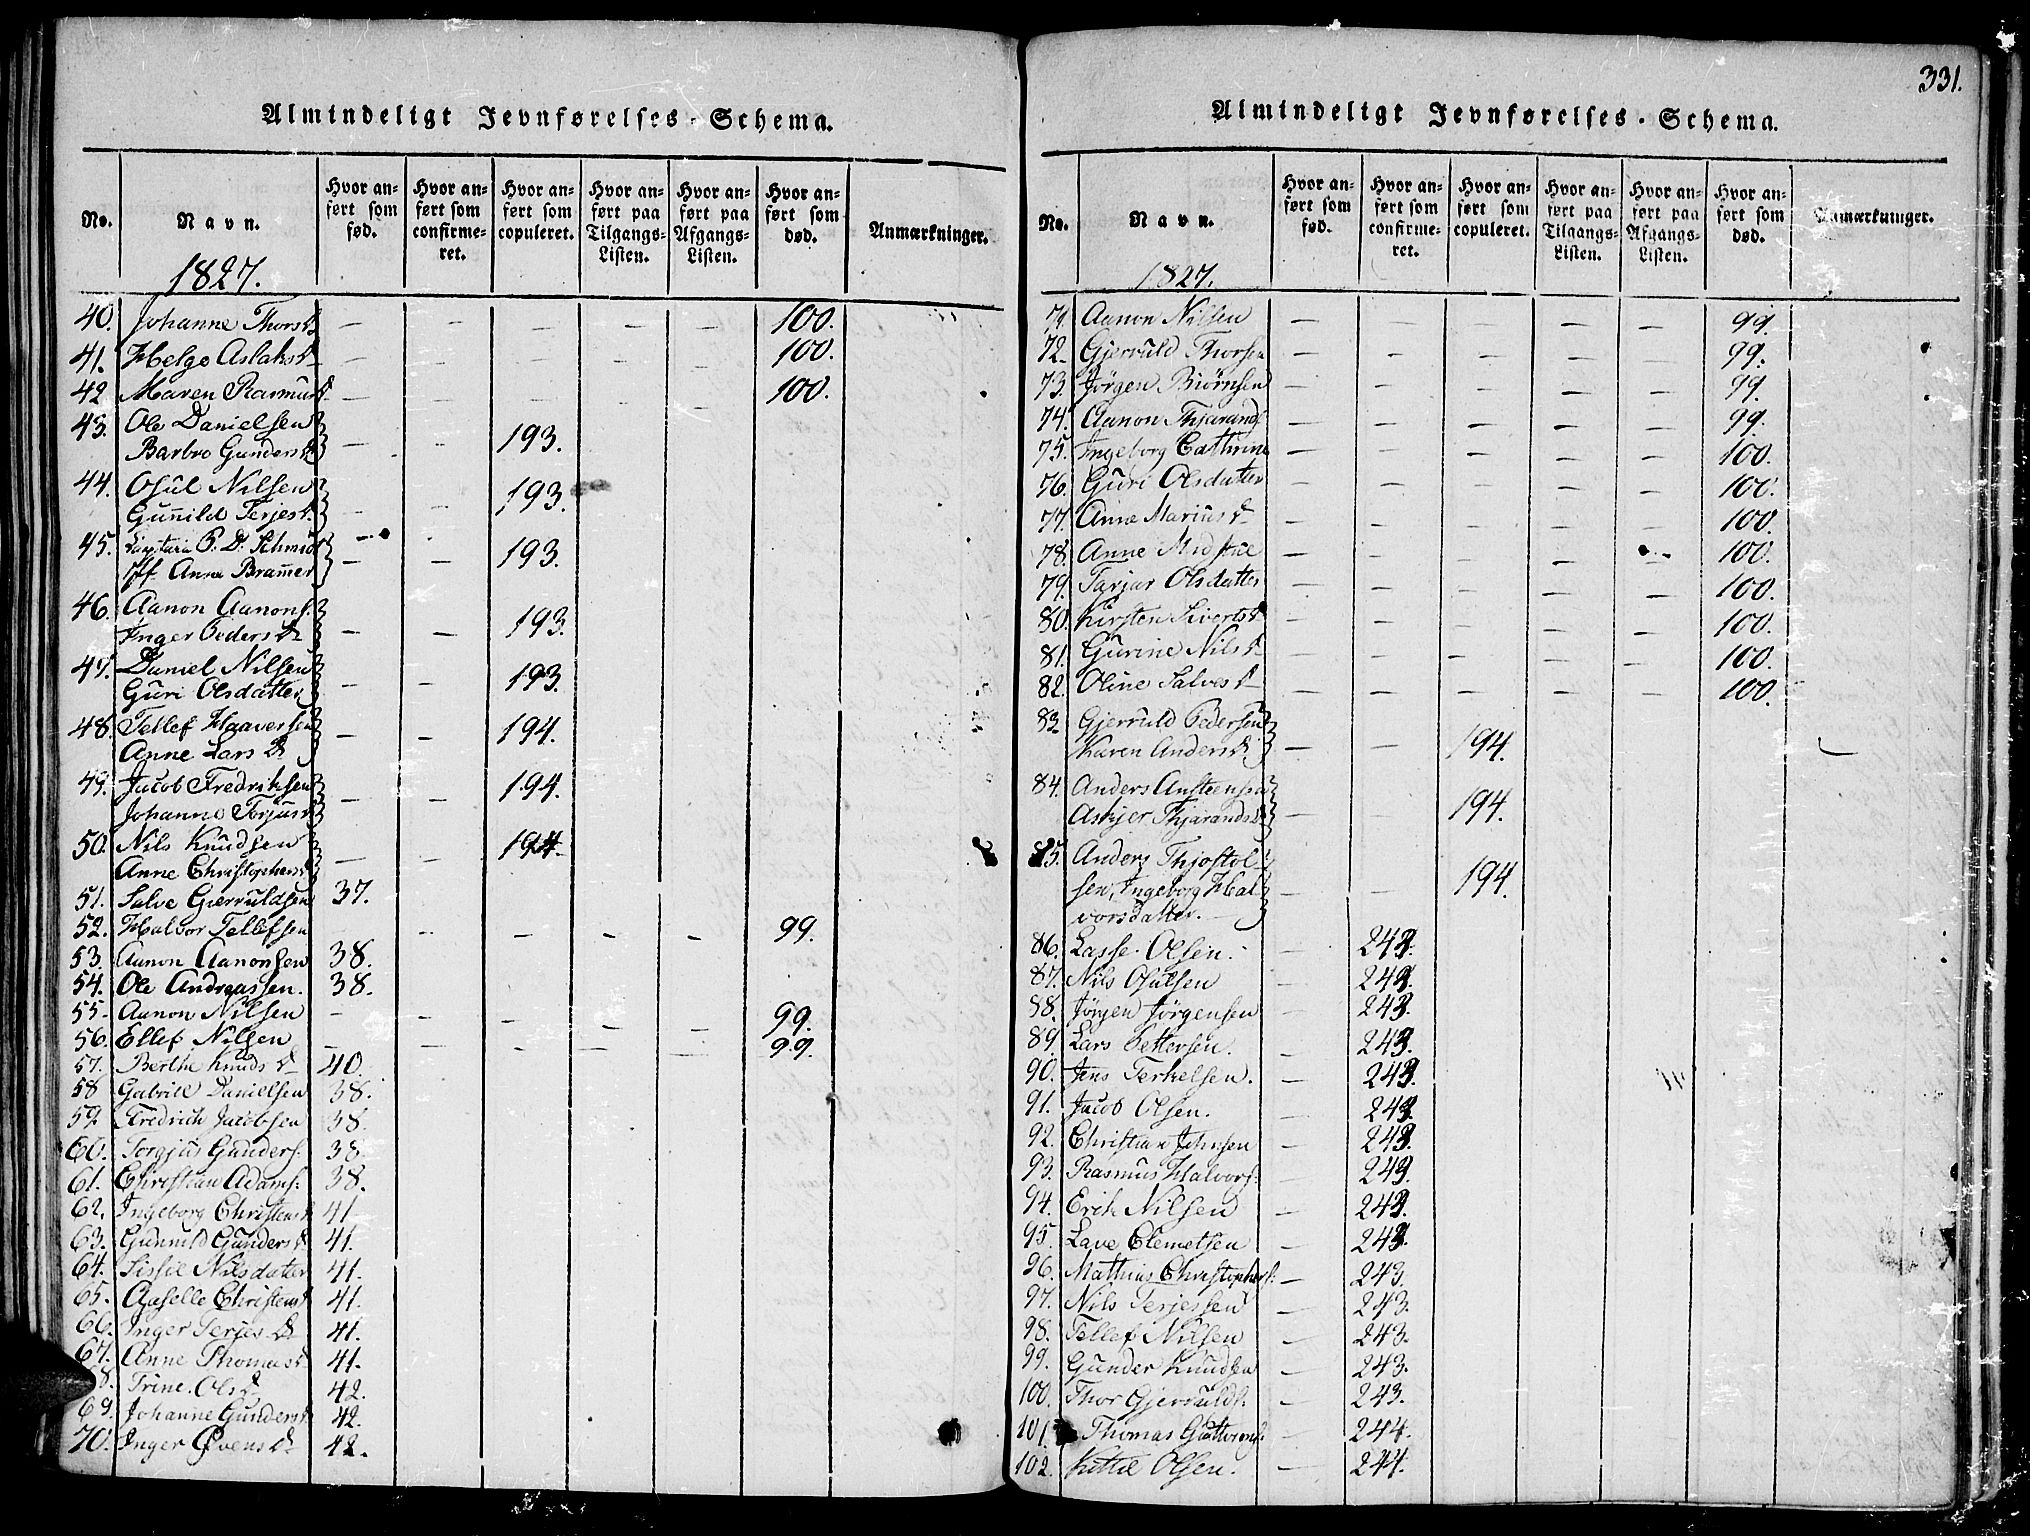 Almindeligt Jevnførelses-Schema.
No. Navn. Hvor anført som fød. Hvor anført som confirmeret. Hvor anført som copuleret. Hvor anført paa Tilgangs-Listen. Hvor anført paa Afgangs-Listen. Hvor anført som død. Anmærkninger.
1827.
40. Johanne Thorsd. — — — — — 100.
41. Helge Aslaksd — — — — — 100.
42 Maren Rasmusd. — — — — — 100.
43. Ole Danielsen
Barbro Gundersd — — 193.
44. Osul Nilsen
Gunnild Terjesd. — — 193.
45. P. D. Schmidt
Anne Bramer — — 193.
46. Aanon Aanons.
Inger Pedersd — — 193.
47. Daniel Nilsen
Guri Olsdatter — — 193.
48. Tellef Haaversen
Anne Larsd — — 194.
49. Jacob Fredriksen
Johanne Torjusd — — 194.
50. Nils Knudsen
Anne Christophersd — — 194
51. Salve Gjerruldsen 37.
52. Halvor Tellefsen — — — — 99.
53. Aanon Aanonsen 38.
54. Ole Andreassen. 38.
55. Aanon Nilsen — — — — — 99.
56. Ellef Nilsen — — — — — 99.
57. Berthe Knudsd 40.
58 Gabriel Danielsen 38.
59. Fredrich Jacobsen 38.
60. Torgjus Gunders. 38.
61. Christian Adams. 38.
62. Ingeborg Christensd 41
63. Gunnild Gundersd 41.
64. Sissil Nilsdatter 41.
65. Aaselle Christensd 41.
66. Inger Terjesd 41.
67. Anne Thomasd 41.
8. Trine Olsd 42.
69. Johanne Gundersd 42.
70. Inger Evensd 42.
331.
Almindeligt Jevnførelses-Schema.
No. Navn. Hvor anført som fød. Hvor anført som confirmeret. Hvor anført som copuleret. Hvor anført paa Tilgangs-Listen. Hvor anført paa Afgangs-Listen. Hvor anført som død. Anmærkninger.
1827.
71. Aanon Nilsen — — — — — 99.
72. Gjeruld Thorsen — — — — — 99.
73. Jörgen Biörnsen — — — — — 99.
74. Aanon Thjarands — — — — — 99.
75. Ingeborg Cathrine — — — — — 100.
76. Guri Olsdatter — — — — — 100.
77. Anne Mariusd — — — — — 100.
78. Anne — — — — — 100.
79. Tarjar Olsdatter — — — — — 100.
80. Kirsten Sivertsd — — — — — 100.
81. Gurine Nilsd — — — — — 100.
82. Oline Salvesd — — — — — 100.
83. Gjerruld Pedersen
Karen Andersd — — 194.
84. Anders Ansteensen
Askjer Thjarandsd — — 194.
85. Anders Thjostol
sen, Ingeborg Hal
vorsdatter. — — 194.
86. Lasse Olsen. — 243.
87. Nils Osulsen — 243.
88. Jörgen Jörgensen — 243.
89. Lars Pettersen. — 243.
90. Jens Terkelsen. — 243.
91. Jacob Olsen. — 243.
92. Christian Johnsen — 243.
93. Rasmus Halvors. — 243.
94. Erich Nilsen — 243.
95. Lave Clemetsen — 243.
96. Mathias Christophers. — 243.
97. Nils Terjessen — 243.
98. Tellef Nilsen — 243.
99. Gunder Knudsen — 243.
100. Thor Gjerrulds. — 243.
101. Thomas Guttorms. — 244.
102. Kittil Olsen. — 244.